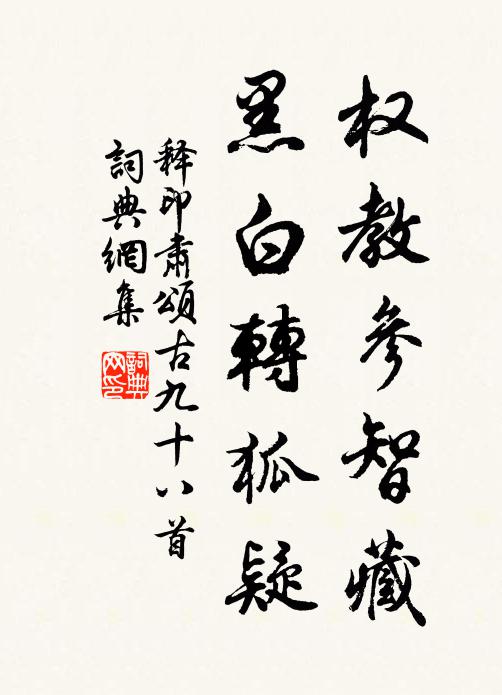 权教参智藏
黑白轉狐疑
释印肃頌古九十八首
詞典網集
詞典网印